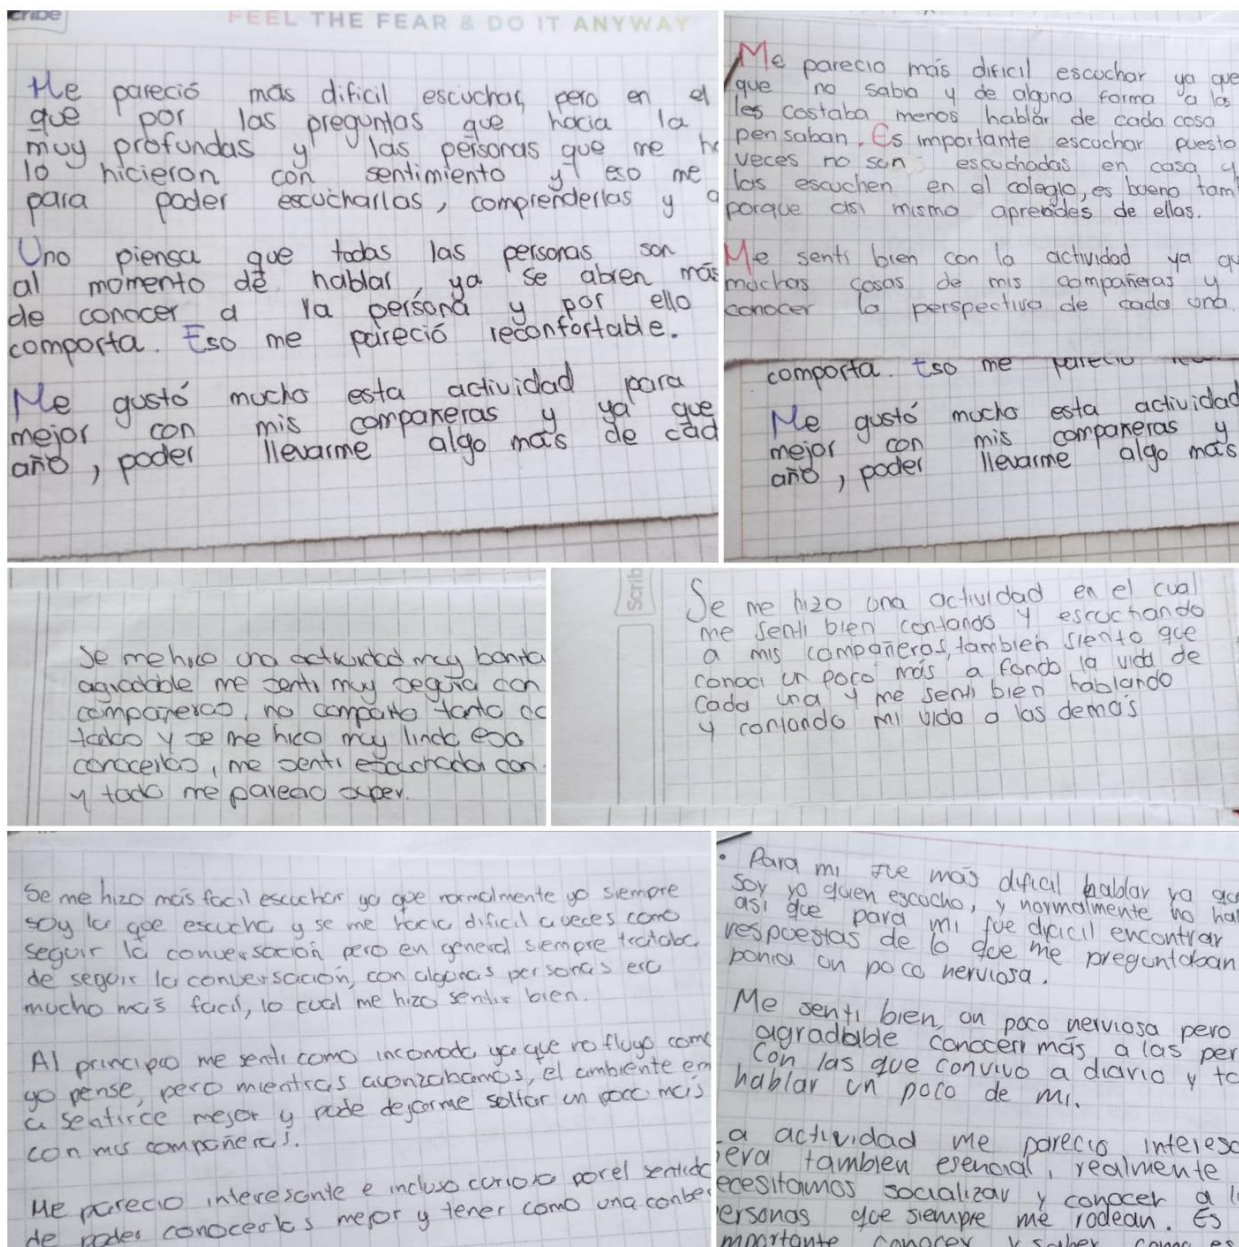 cribe
FEEL THE FEAR & DO IT ANYWAY
Me pareció mas dificil escuchar, pero en el
que por las preguntas que hacia la
muy profundas y las personas que me h
lo hicieron con sentimiento y eso me
para poder escucharlas, comprenderlas y a
Uno piensa que todas las personas son
al momento de hablar, ya se abren más
de conocer a la persona y por ello
comporta. Eso me pareció reconfortable.
Me gustó mucho esta actividad para
mejor con mis compañeras y ya que
año, poder llevarme algo más de cad
Me parecio más dificil escuchar ya que
que no sabia y de alguna forma a las
les costaba menos hablar de cada cosa
pensaban. Es importante escuchar puesto
veces no son escuchadas en casa y
las escuchen en el colegio, es bueno tam
porque asi mismo aprendes de ellas.
Me senti bien con la actividad ya qu
muchas cosas de mis compañeras y
conocer la perspectiva de cada una.
comporta. Eso me pareció
Me gustó mucho esta actividad
mejor con mis compañeras y
año, poder llevarme algo más
Se me hico una actividad muy bonita
agradable me senti muy segura con
compañeras, no comparto tanto co
todas y se me hico muy linda eso
conocerlas, me senti escuchada con
y todo me pareció super.
Scrib
Se me hizo una actividad en el cual
me senti bien contando y escuchando
a mis compañeras, tambien siento que
conoci un poco más a fondo la vida de
cada una y me senti bien hablando
y contando mi vida a los demás
Se me hizo más facil escuchar ya que normalmente yo siempre
soy la que escucha y se me hacia dificil a veces como
seguir la conversación pero en general siempre trataba
de seguir la conversación, con algunas personas era
mucho más facil, lo cual me hizo sentir bien.
Al principio me senti como incomoda ya que no fluyo como
yo pense, pero mientras avanzabamos, el ambiente em
a sentirce mejor y pude dejarme soltar un poco más
con mis compañeras.
Me parecio interesante e incluso curioso por el sentido
de poder conocerlas mejor y tener como una conver
• Para mi fue más dificil hablar ya que
soy yo quen escucho, y normalmente no hab
asi que para mi fue dificil encontrar
respuestas de lo que me preguntaban
ponia un poco nerviosa.
Me senti bien, un poco nerviosa pero
agradable conocer más a las per
con las que convivo a diario y ta
hablar un poco de mi.
La actividad me parecio interesa
era tambien esencial, realmente
ecesitamos socializar y conocer a l
ersonas que siempre me rodean. Es
mportante conocer y saber como es